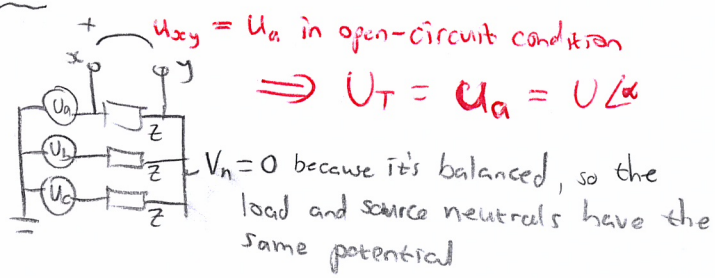 + Uxy = Ua in open-circuit condition
x y
⇒ UT = Ua = U∠α
Ua Z
Ub Z
Uc Z
Vn = 0 because it's balanced, so the
load and source neutrals have the
same potential